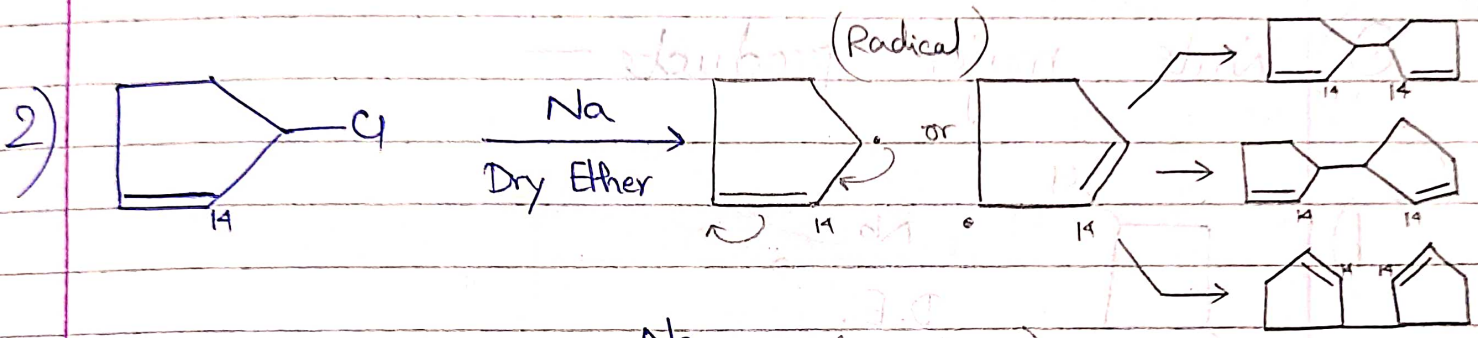 (Radical)
2)
Cl
Na
Dry Ether
or
14
14
14
14 14
14 14
14 14
Na